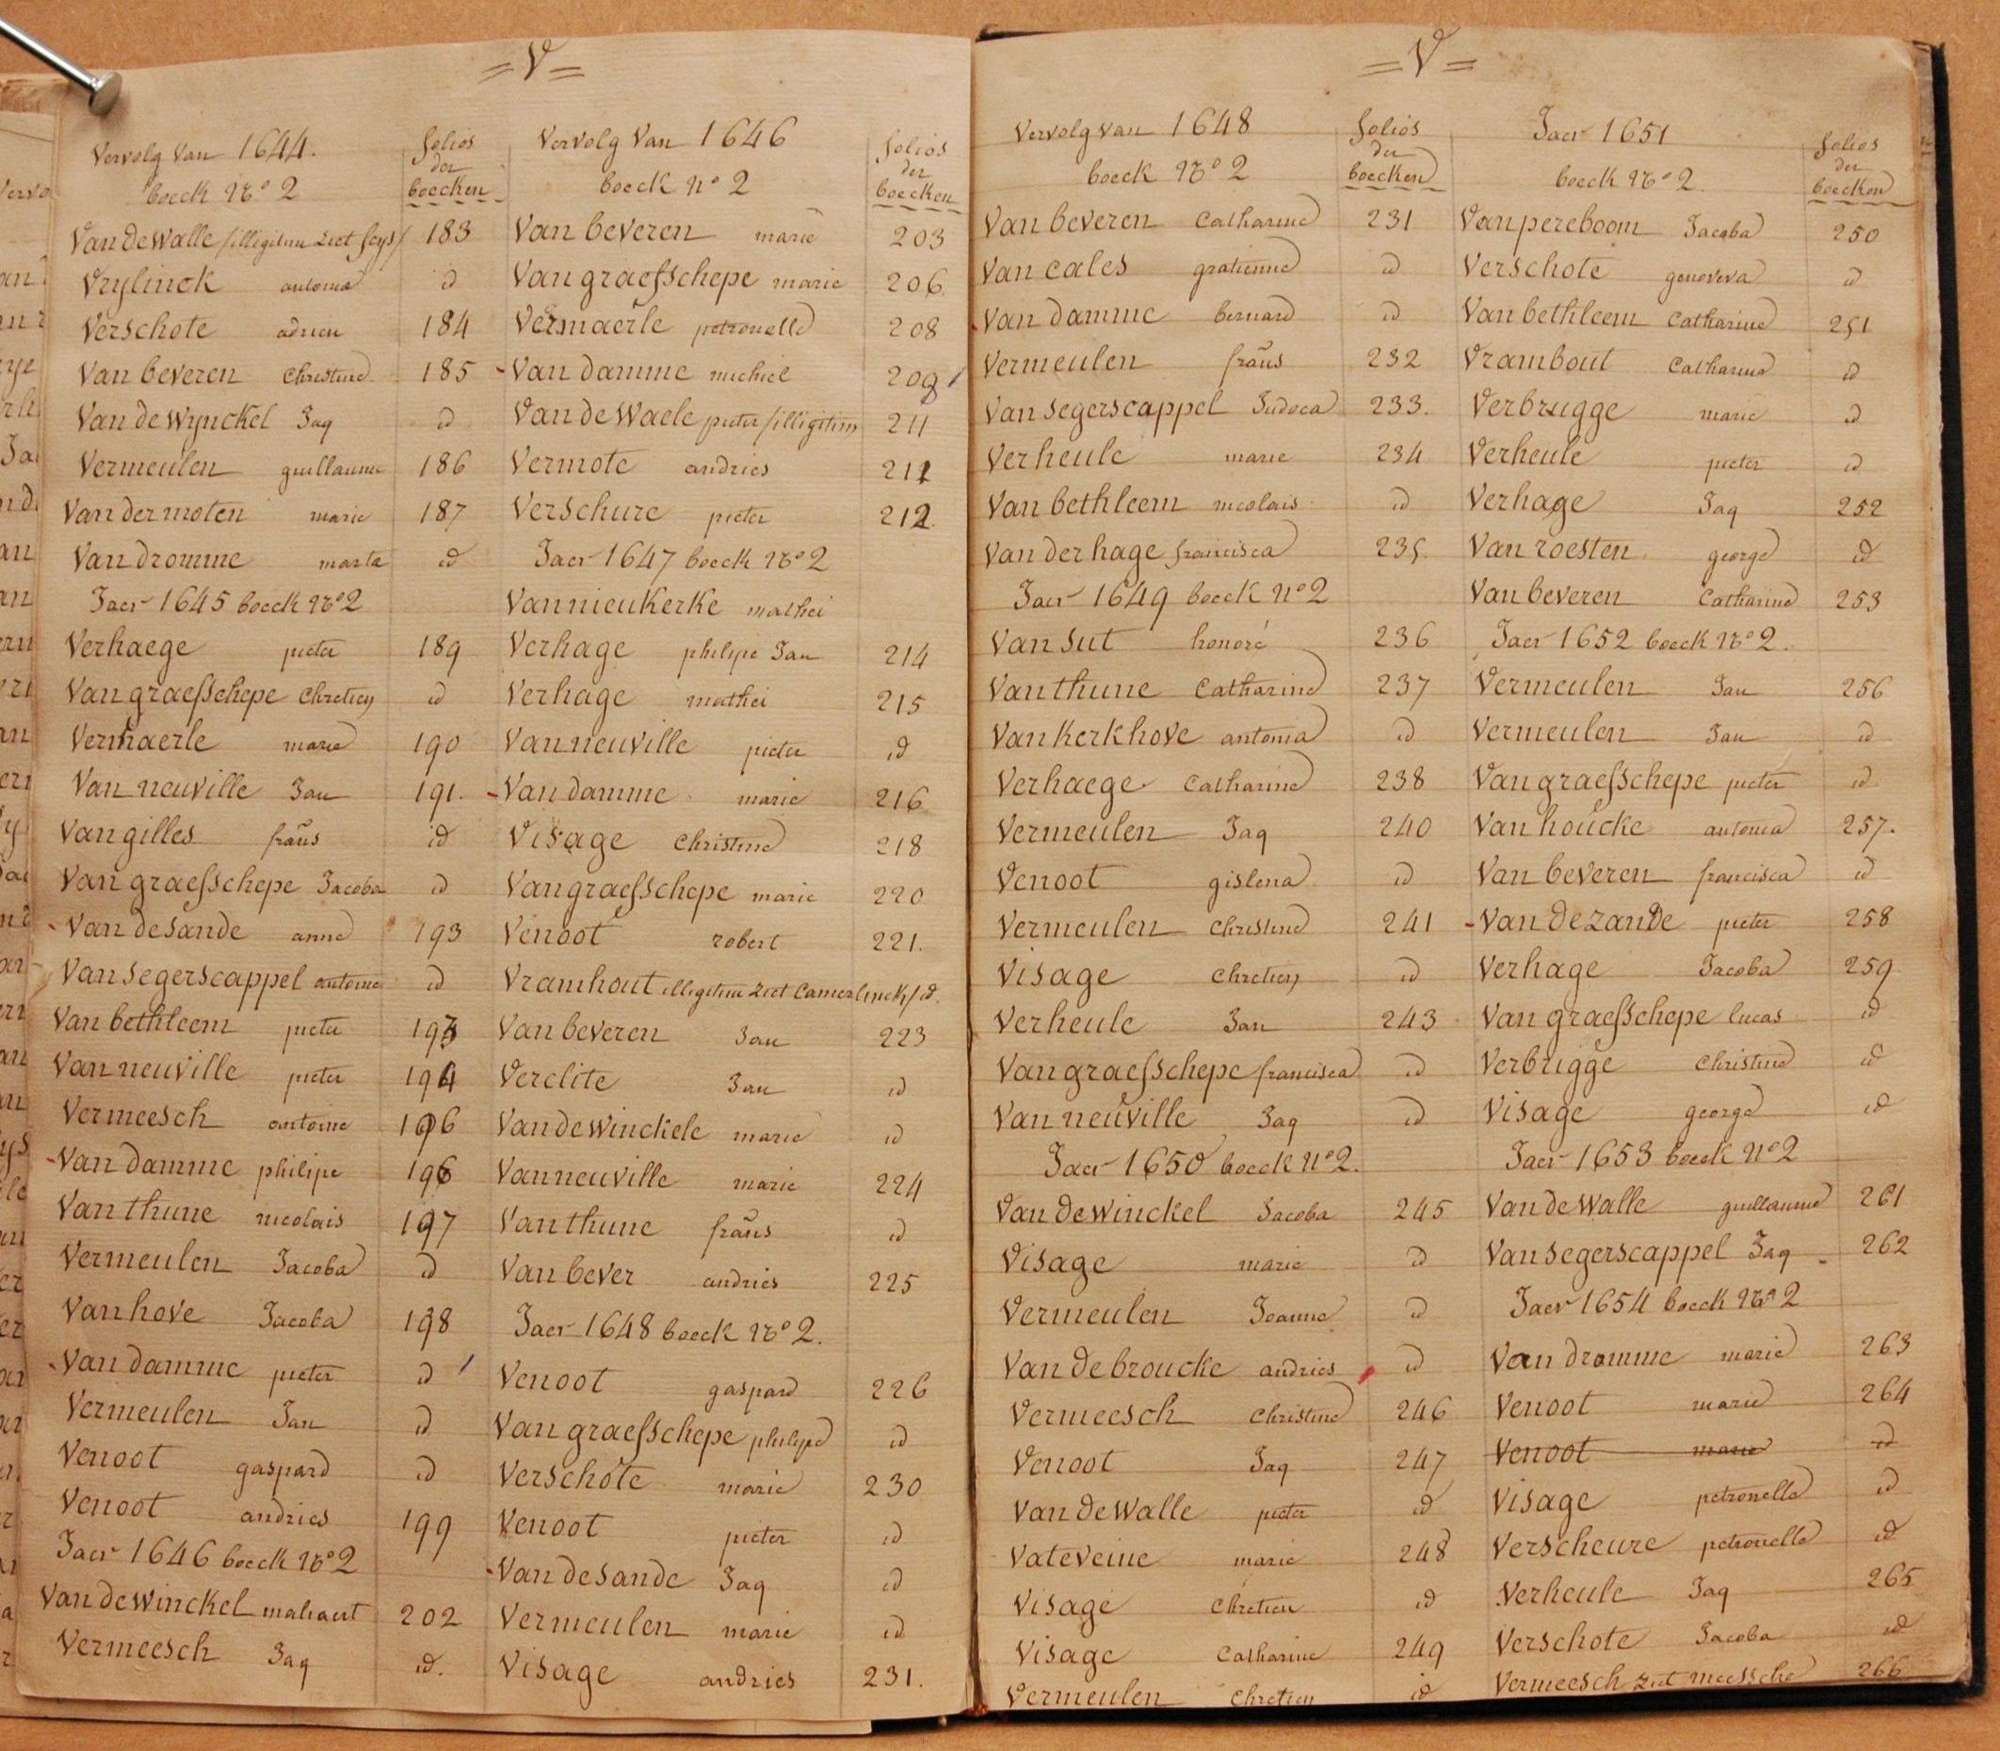 =V=
Vervolg Van 1644.
boeck No 2
folios
der
boecken
Van De Walle /illigitim ziet seys/ 183
Vrylinck antonia id
Verschote adrien 184
Van beveren Christine 185
Van de Wynckel Jaq id
Vermeulen guillaume 186
Van der moten marie 187
Van dromme marta id
Jaer 1645 boeck No 2
Verhaege pieter 189
Van graefschepe Chretien id
Vermaerle marie 190
Van neuville Jan 191.
Van gilles frañs id
Van graefschepe Jacoba id
Van de sande anne 193
Van segerscappel antoine id
Van bethleem pieter 193
Van neuville pieter 194
Vermeesch antoine 196
Van damme philipe 196
Van thune nicolais 197
Vermeulen Jacoba id
Van hove Jacoba 198
Van damme pieter id
Vermeulen Jan id
Venoot gaspard id
Venoot andries 199
Jaer 1646 boeck No 2
Van de Winckel mahaut 202
Vermeesch Jaq id.
Vervolg Van 1646
boeck No 2
folios
der
boecken
Van beveren marie 203
Van graefschepe marie 206
Vermaerle petronelle 208
Van damme michiel 209
Van de Waele pieter /illigitim 211
Vermote andries 211
Verschure pieter 212.
Jaer 1647 boeck No 2
Van nieukerke mathei
Verhage philipe Jan 214
Verhage mathei 215
Van neuville pieter id
Van damme marie 216
Visage Christine 218
Van graefschepe marie 220
Venoot robert 221.
Vramhout illigitim ziet Camerlinck/id.
Van beveren Jan 223
Verclite Jan id
Van de Winckele marie id
Van neuville marie 224
Van thune frañs id
Van bever andries 225
Jaer 1648 boeck No 2.
Venoot gaspard 226
Van graefschepe philipe id
Verschote marie 230
Venoot pieter id
Van de sande Jaq id
Vermeulen marie id
Visage andries 231.
=V=
Vervolg van 1648
boeck No 2
folios
der
boecken
Van beveren Catharine 231
Van cales gratienne id
Van damme bernard id
Vermeulen frañs 232
Van segerscappel Judoca 233.
Verheule marie 234
Van bethleem nicolais id
Van der hage francisca 235.
Jaer 1649 boeck No 2
Van sut honoré 236
Van thune Catharine 237
Van Kerkhove antonia id
Verhaege Catharine 238
Vermeulen Jaq 240
Venoot gislena id
Vermeulen Christine 241
Visage Chretien id
Verheule Jan 243
Van graefschepe francisca id
Van neuville Jaq id
Jaer 1650 boeck No 2.
Van de Winckel Jacoba 245
Visage marie id
Vermeulen Joanne id
Van de broucke andries id
Vermeesch Christine 246
Venoot Jaq 247
Van de Walle pieter id
Vateveine marie 248
Visage Chretien id
Visage Catharine 249
Vermeulen Chretien id
Jaer 1651
boeck No 2
folios
der
boecken
Van pereboom Jacoba 250
Verschote genoveva id
Van bethleem Catharine 251
Vrambout Catharina id
Verbrugge marie id
Verheule pieter id
Verhage Jaq 252
Van roesten george id
Van beveren Catharine 253
Jaer 1652 boeck No 2.
Vermeulen Jan 256
Vermeulen Jan id
Van graefschepe pieter id
Van houcke antonia 257.
Van beveren francisca id
Van de zande pieter 258
Verhage Jacoba 259
Van graefschepe lucas id
Verbrigge Christine id
Visage george id
Jaer 1653 boeck No 2
Van de Walle guillaume 261
Van segerscappel Jaq 262
Jaer 1654 boeck No 2
Van dromme marie 263
Venoot marie 264
Venoot marie id
Visage petronelle id
Verscheure petronelle id
Verheule Jaq 265
Verschote Jacoba id
Vermeesch ziet meessche 266